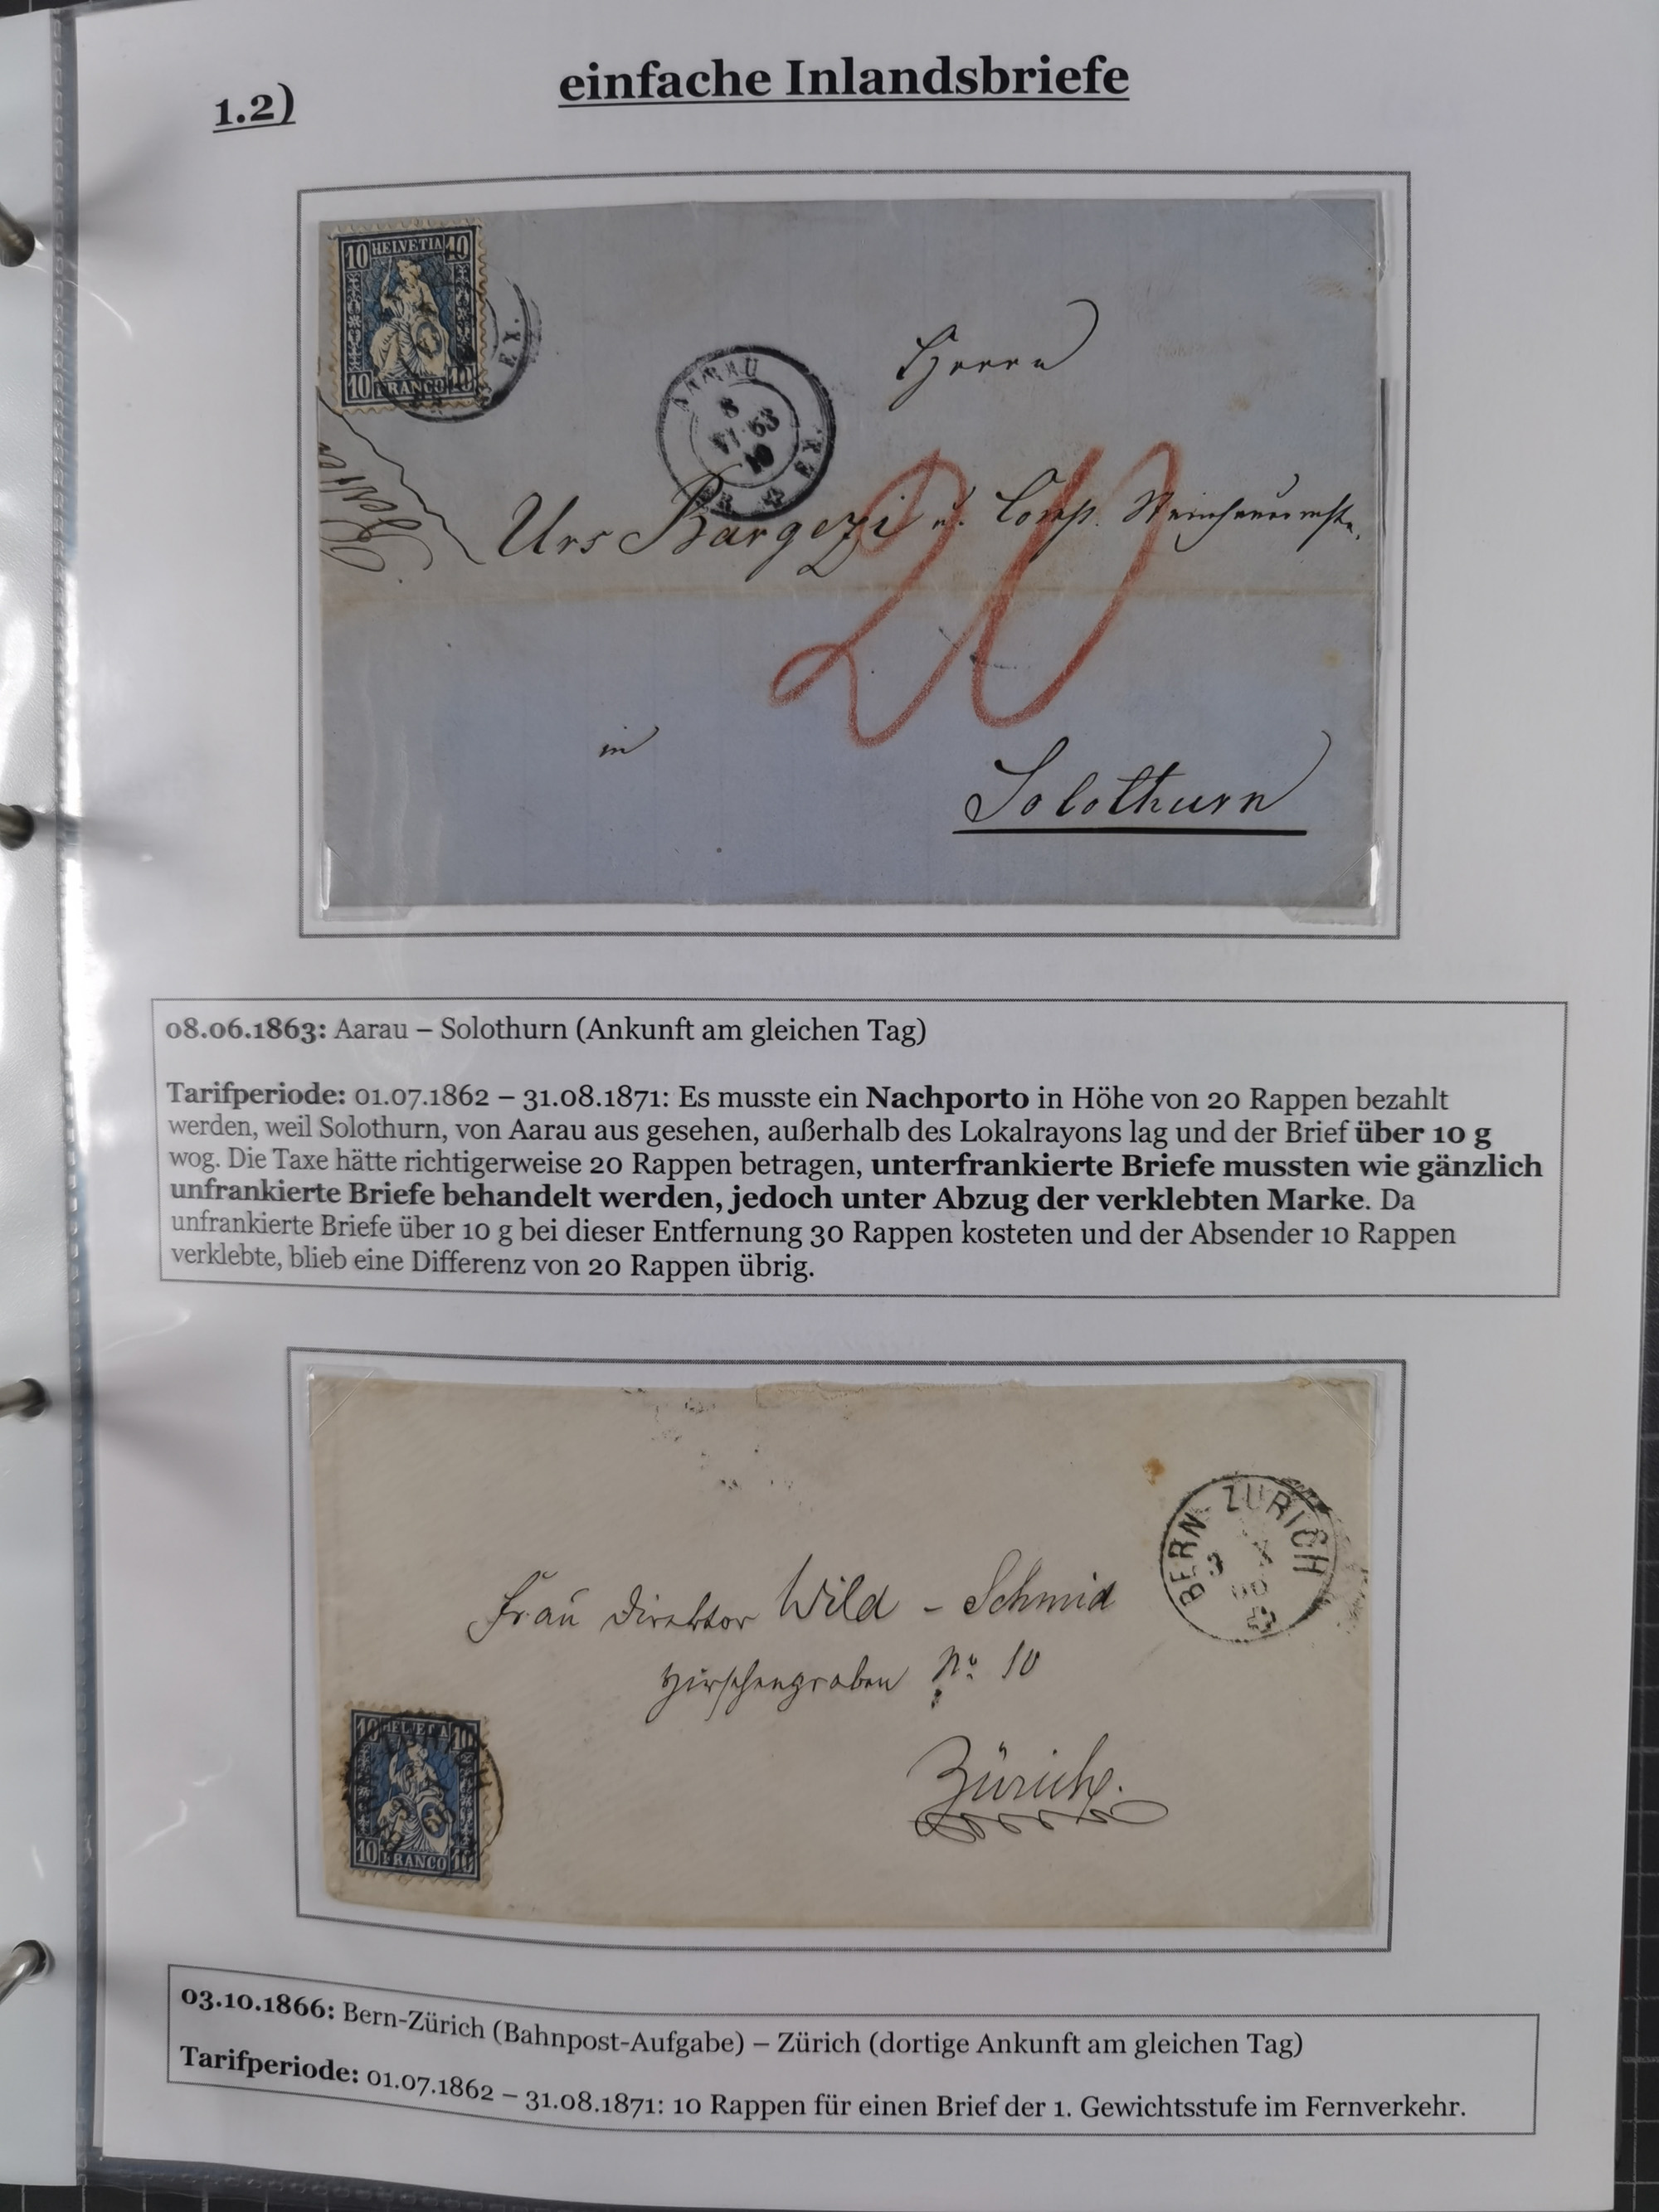 1.2)
einfache Inlandsbriefe
10 HELVETIA 10
10 FRANCO 10
EX.
AARAU
8
VI 63
10
EX.
Herrn
Urs Bargezi u. Comp.
20
in
Solothurn
08.06.1863: Aarau – Solothurn (Ankunft am gleichen Tag)
Tarifperiode: 01.07.1862 – 31.08.1871: Es musste ein Nachporto in Höhe von 20 Rappen bezahlt
werden, weil Solothurn, von Aarau aus gesehen, außerhalb des Lokalrayons lag und der Brief über 10 g
wog. Die Taxe hätte richtigerweise 20 Rappen betragen, unterfrankierte Briefe mussten wie gänzlich
unfrankierte Briefe behandelt werden, jedoch unter Abzug der verklebten Marke. Da
unfrankierte Briefe über 10 g bei dieser Entfernung 30 Rappen kosteten und der Absender 10 Rappen
verklebte, blieb eine Differenz von 20 Rappen übrig.
BERN ZÜRICH
3 X
Frau Direktor Wild - Schmid
Hirschengraben No 10
Zürich.
10 HELVETIA 10
10 FRANCO 10
03.10.1866: Bern-Zürich (Bahnpost-Aufgabe) – Zürich (dortige Ankunft am gleichen Tag)
Tarifperiode: 01.07.1862 – 31.08.1871: 10 Rappen für einen Brief der 1. Gewichtsstufe im Fernverkehr.